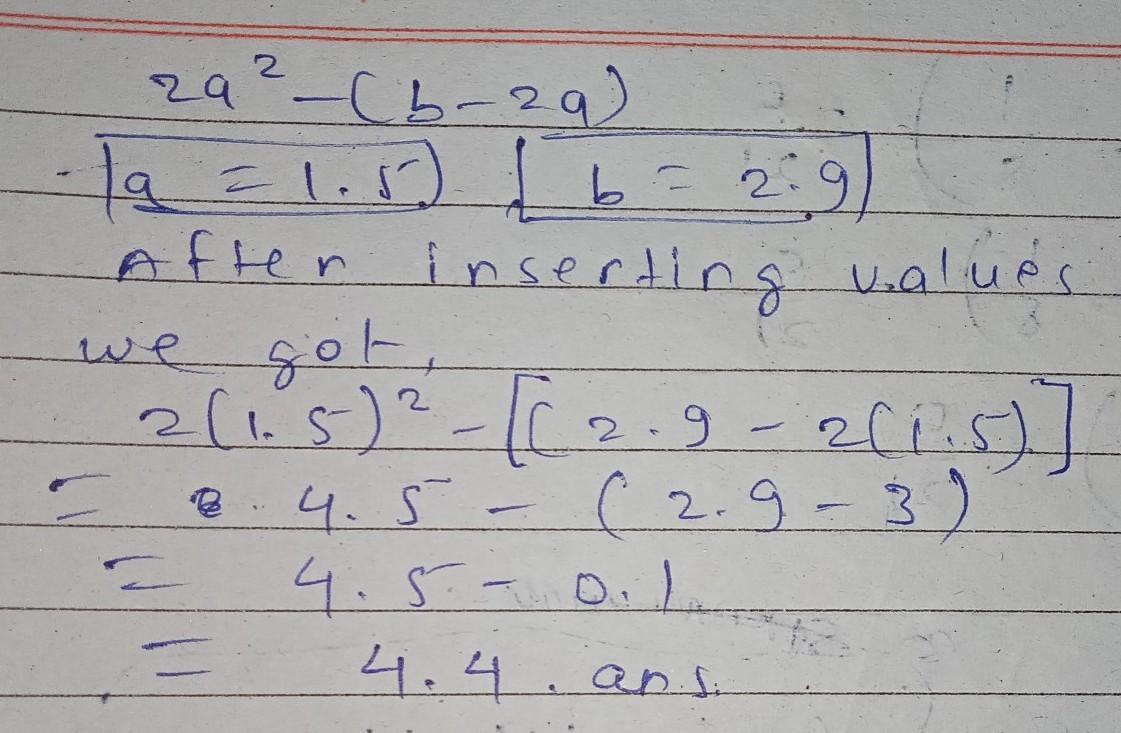 2a² - (b - 2a)
a = 1.5 b = 2.9
After inserting values
we got,
2(1.5)² - [(2.9 - 2(1.5)]
= 4.5 - (2.9 - 3)
= 4.5 - 0.1
= 4.4. ans.